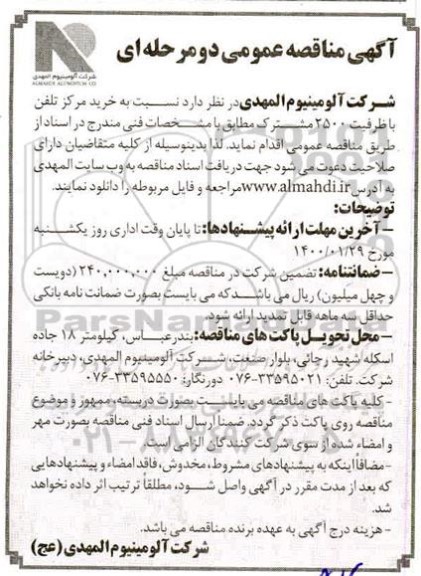 شرکت آلومینیوم المهدی
ALMAHDI ALUMINIUM CO
آگهی مناقصه عمومی دو مرحله ای
شرکت آلومینیوم المهدی در نظر دارد نسبت به خرید مرکز تلفن
با ظرفیت ۲۵۰۰ مشترک مطابق با مشخصات فنی مندرج در اسناد از
طریق مناقصه عمومی اقدام نماید. لذا بدینوسیله از کلیه متقاضیان دارای
صلاحیت دعوت می شود جهت دریافت اسناد مناقصه به وب سایت المهدی
به آدرس www.almahdi.ir مراجعه و فایل مربوطه را دانلود نمایند.
توضیحات:
- آخرین مهلت ارائه پیشنهادها: تا پایان وقت اداری روز یکشنبه
مورخ ۱۴۰۰/۰۱/۲۹
- ضمانتنامه: تضمین شرکت در مناقصه مبلغ ۲۴۰,۰۰۰,۰۰۰ (دویست
و چهل میلیون) ریال می باشد که می بایست بصورت ضمانت نامه بانکی
حداقل سه ماهه قابل تمدید ارائه شود.
- محل تحویل پاکت های مناقصه: بندرعباس، کیلومتر ۱۸ جاده
اسکله شهید رجائی، بلوار صنعت، شرکت آلومینیوم المهدی، دبیرخانه
شرکت. تلفن: ۳۳۵۹۵۰۲۱-۰۷۶ دورنگار: ۳۳۵۹۵۵۵۰-۰۷۶
- کلیه پاکت های مناقصه می بایست بصورت دربسته، ممهور و موضوع
مناقصه روی پاکت ذکر گردد. ضمناً ارسال اسناد فنی مناقصه بصورت مهر
و امضاء شده از سوی شرکت کنندگان الزامی است.
- مضافاً اینکه به پیشنهادهای مشروط، مخدوش، فاقد امضاء و پیشنهادهایی
که بعد از مدت مقرر در آگهی واصل شود، مطلقاً ترتیب اثر داده نخواهد
شد.
- هزینه درج آگهی به عهده برنده مناقصه می باشد.
شرکت آلومینیوم المهدی (عج)
ParsNamadData